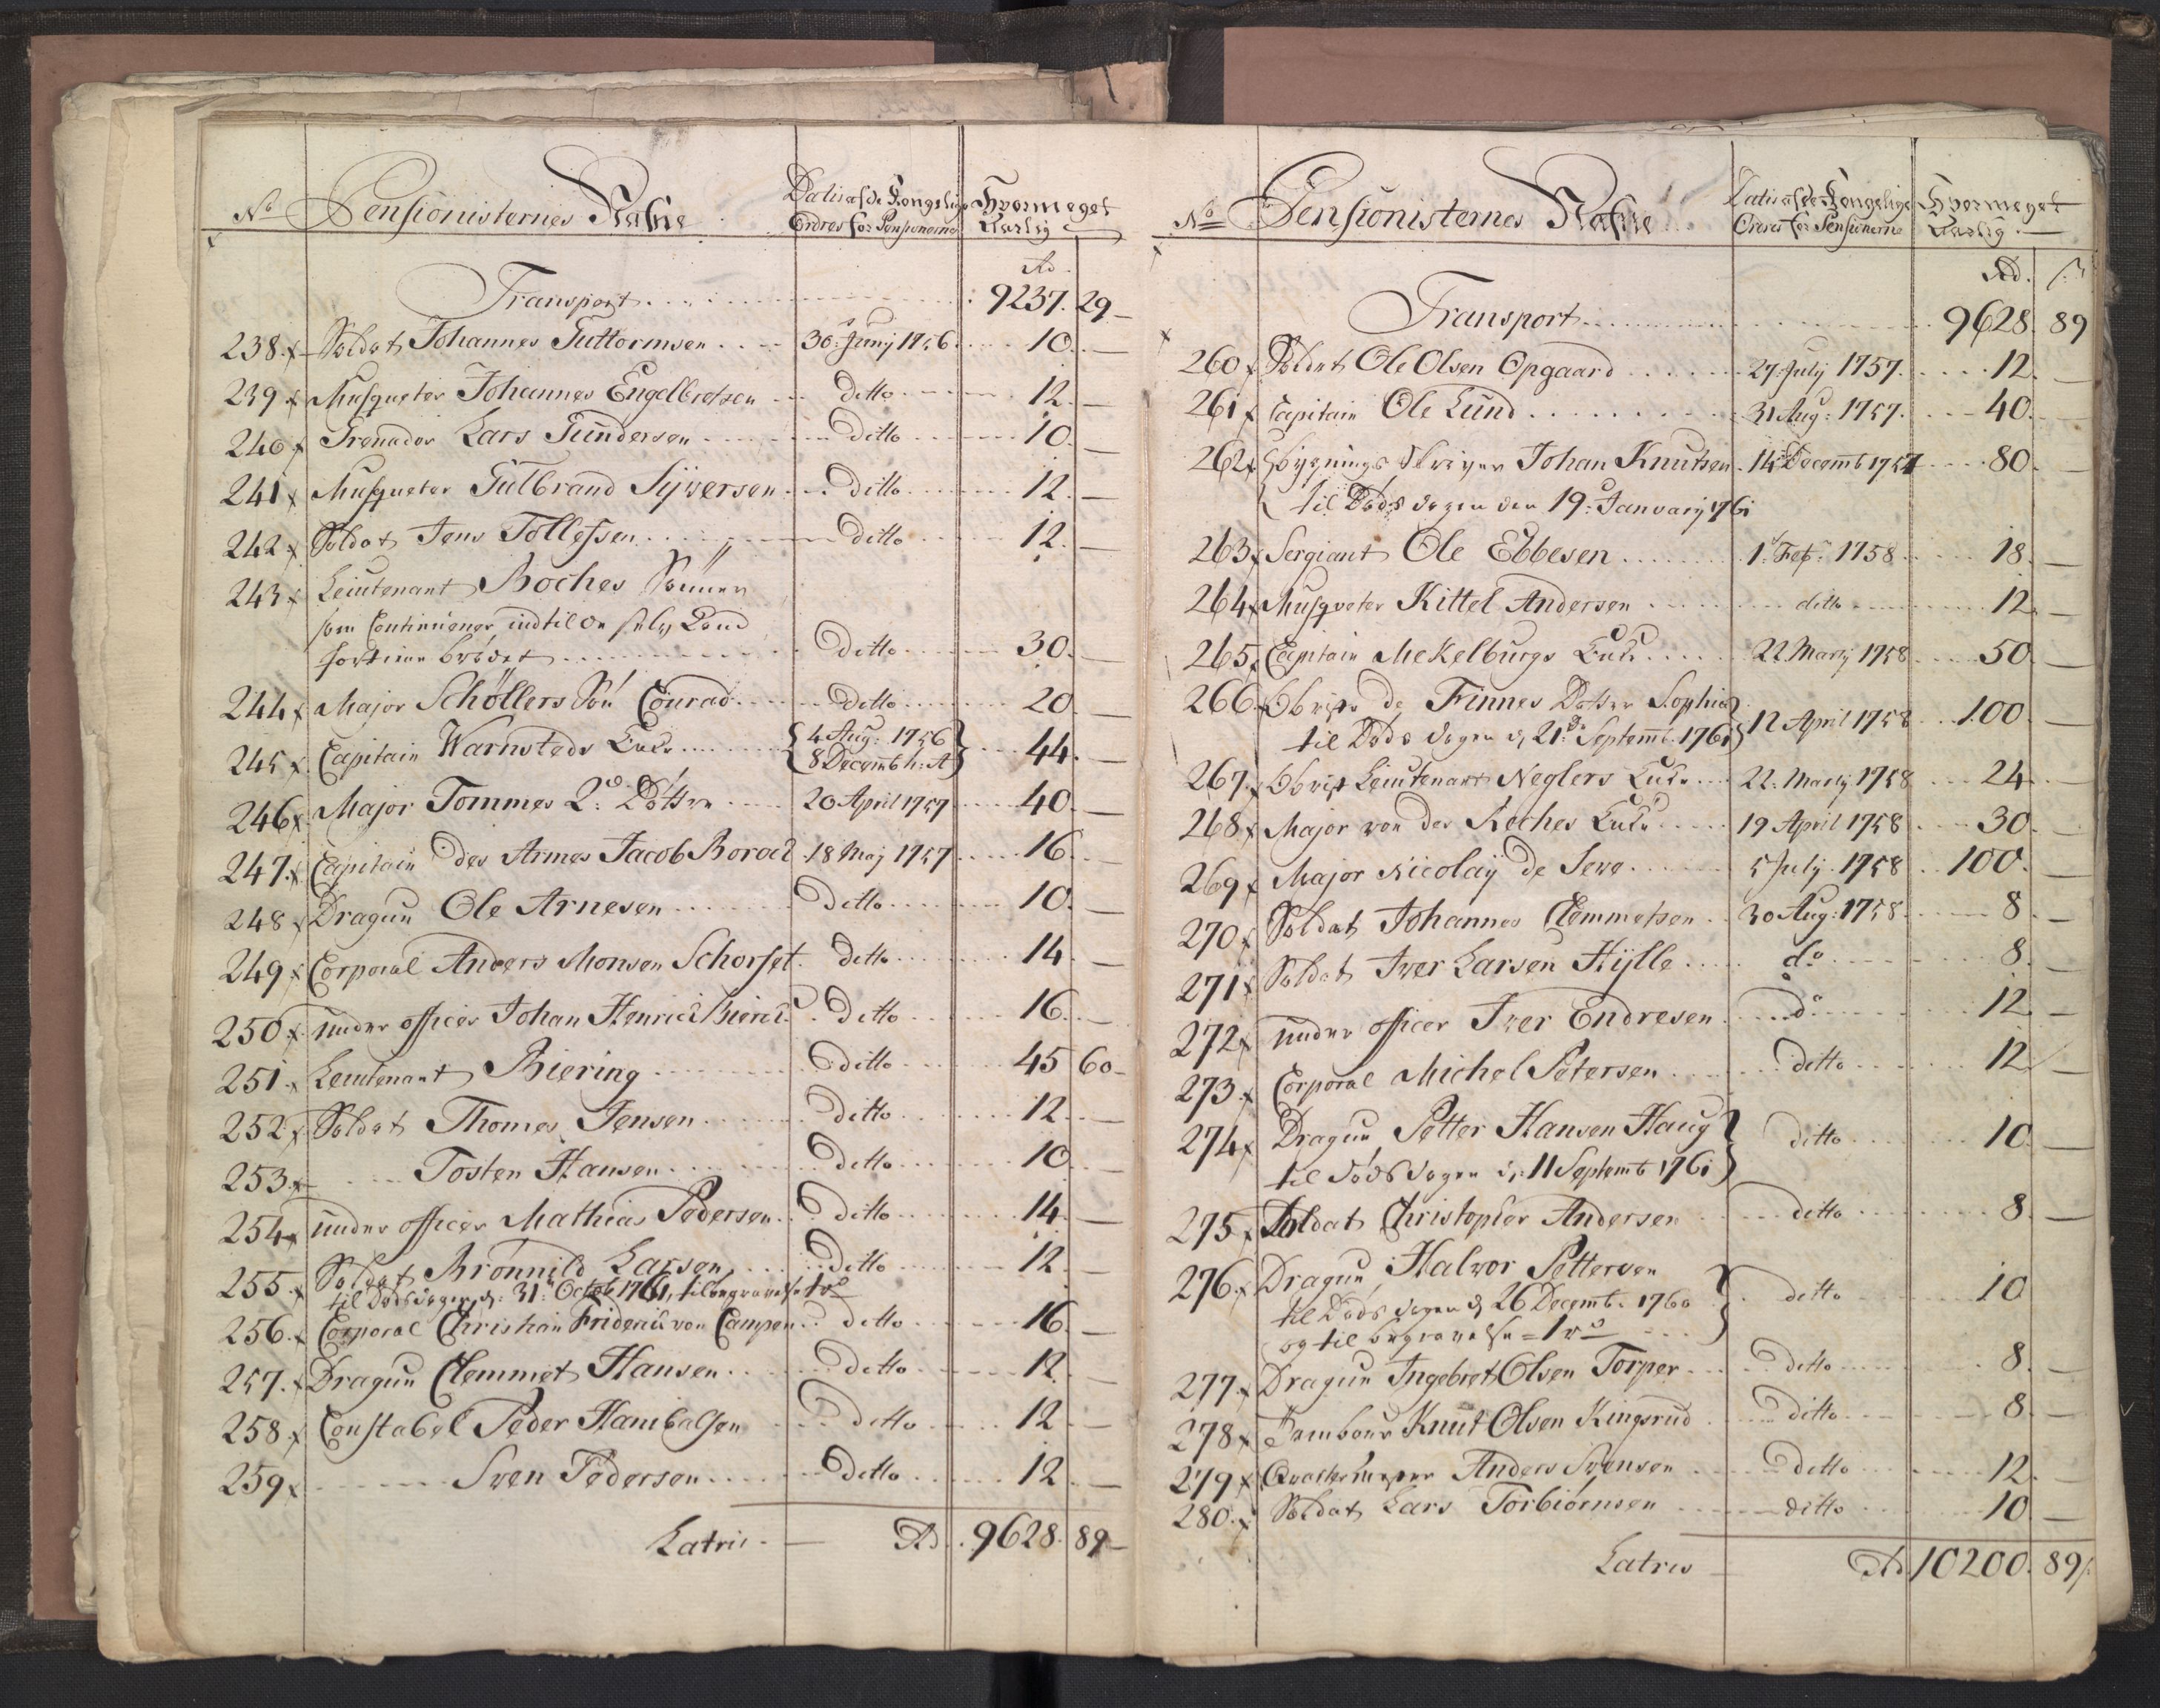 No Pensionisternes Nafne Datis af de Kongelige Hvormeget
Ordres for Pensionerne Aarlig
Rd
Transport 9237. 29
238. Soldat Johannes Guttormsen 30 Junij 1756 10.
239 Musqueter Johannes Engelbretsen ditto 12.
240 Grenader Lars Gundersen ditto 10
241 Musqueter Gulbrand Syversen ditto 12.
242 Soldat Jens Tollefsen ditto 12.
243 Leiutenant Roches Sønner
som Continuerer indtil de selv kand
fortiene brødet ditto 30.
244 Major Schøllers Søn Conrad ditto 20
245 Capitain Warnsteds Enke 4 Aug: 1756 44.
8 Decemb h: A
246 Major Tommes 2de Døttre 20 April 1757 40.
247. Capitain des Armes Jacob Borod 18 Maj 1757 16
248 Dragun Ole Arnesen ditto 10.
249 Corporal Anders Monsen Schorset ditto 14
250 under officer Johan Henric ditto 16.
251. Leiutenant Biering ditto 45 60
252 Soldat Thomes Jensen ditto 12.
253 Tosten Hansen ditto 10
254 under officer Mathias Pedersen ditto 14
255. Soldat Brønnild Larsen ditto 12
til Døds dagen d: 31 Octob 1761, til begravelse 1 rd
256. Corporal Christian Frideric von Campen ditto 16.
257. Dragun Clemmet Hansen ditto 12.
258. Constabel Peder Hanibalsen ditto 12
259 Sven Pedersen ditto 12
Latris Rd 9628. 89
No Pensionisternes Nafne Datis af de Kongelige Hvormeget
Ordres for Pensionerne Aarlig
Rd. s
Transport 9628. 89
260 Soldat Ole Olsen Opgaard 27 July 1757. 12.
261 Capitain Ole Lund 31 Aug: 1757. 40.
262 Bygnings Skriver Johan Knutsen 14 Decemb 1757 80.
til Døds dagen den 19 Januarij 1761
263 Sergiant Ole Ebbesen 1 Feb: 1758 18.
264 Musqveter Kittel Andersen ditto 12.
265. Capitain Mekelburgs Enke 22 Martj 1758 50.
266 Obrist de Finnes Datter Sophia 12 April 1758 100
til Døds dagen d. 21de Septemb. 1761
267. Obrist Leiutenant Neglers Enke 22. Martj 1758 24
268 Major von der Roches Enke 19 April 1758 30
269 Major Nicolaij de Seve 5 July 1758 100.
270 Soldat Johannes Clemmetsen 30 Aug: 1758 8
271 Soldat Iver Larsen Hylle do 8.
272 under officer Iver Endresen do 12
273. Corporal Michel Petersen ditto 12
274 Dragun Petter Hansen Haug ditto 10
til døds dagen d: 11 Septemb 1761
275. Soldat Christopher Andersen ditto 8.
276. Dragun Halvor Pettersen ditto 10
til Døds dagen d 26 Decemb. 1760
og til begravelse = 1 rd
277. Dragun Ingebret Olsen Torper ditto 8.
278 Tambour Knut Olsen Ringsrud ditto 8.
279 Qvartermester Anders Svensen ditto 12
280. Soldat Lars Torbiørnsen ditto 10
Latris Rd 10200. 89